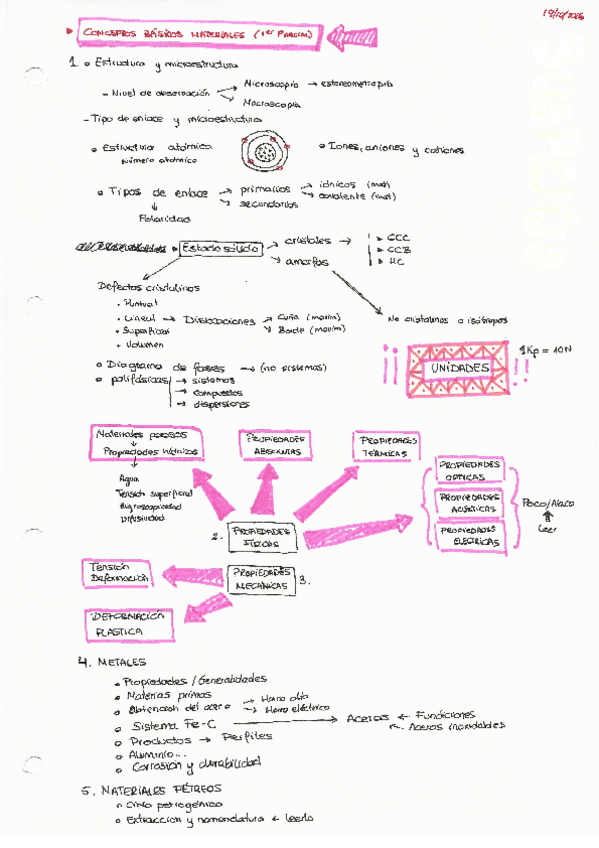 19/10/2016
CONCEPTOS BÁSICOS MATERIALES (1er PARCIAL)
1. Estructura y microestructura
- Nivel de observación
Microscopía → estereometropía
Macroscopía
- Tipo de enlace y microestructura
Estructura atómica
Número atómico
Iones, aniones y cationes
Tipos de enlace
primarios
iónicos
covalente
secundarios
Polaridad
Estado sólido
cristales →
CCC
CCB
HC
amorfos
Defectos cristalinos
• Puntual
• Lineal → Dislocaciones
Cuña (movim)
Borde (movim)
• Superficial
• Volumen
No cristalinos o isótropos
Diagrama de fases → (no sistemas)
polifásicos
→ sistemas
→ compuestos
→ dispersiones
¡¡ UNIDADES !!
1Kp = 10N
Materiales porosos
Propiedades hídricas
Agua
Tensión superficial
Higroscopicidad
Difusividad
PROPIEDADES
ABSOLUTAS
PROPIEDADES
TÉRMICAS
PROPIEDADES
ÓPTICAS
PROPIEDADES
ACÚSTICAS
PROPIEDADES
ELÉCTRICAS
Poco/Nada
Leer
2. PROPIEDADES
FÍSICAS
PROPIEDADES
MECÁNICAS 3.
Tensión
Deformación
DEFORMACIÓN
PLASTICA
4. METALES
Propiedades / Generalidades
Materias primas
Obtención del acero
Horno alto
Horno eléctrico
Sistema Fe-C → Aceros
← Fundiciones
Aceros inoxidables
Productos → Perfiles
Aluminio...
Corrosión y durabilidad
5. MATERIALES PÉTREOS
Ciclo petrogénico
Extracción y nomenclatura ← leerlo